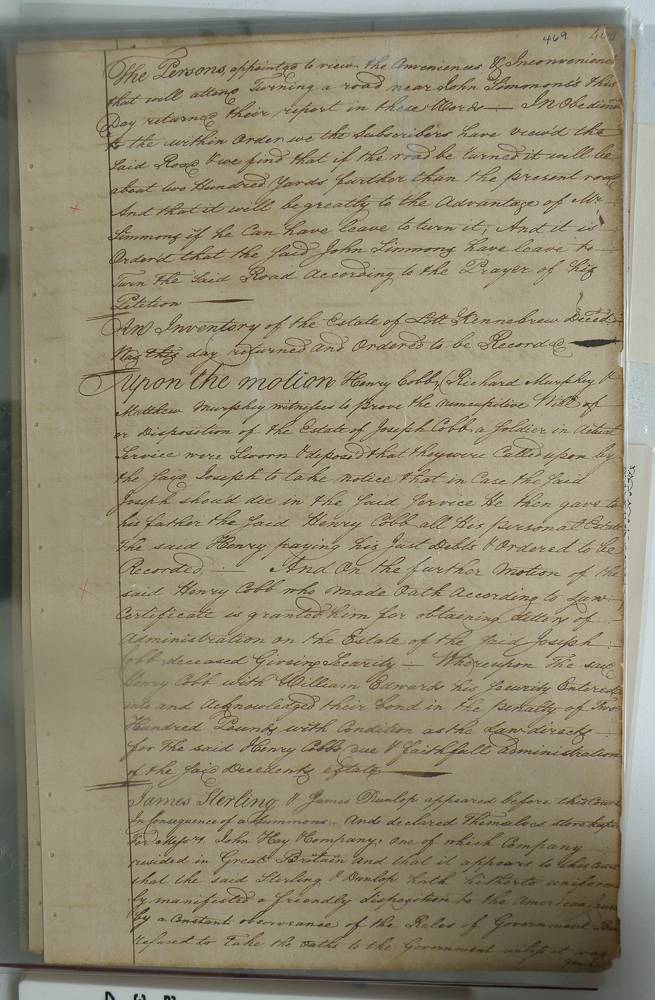 469
The Persons appointed to view the Conveniences & Inconveniences
that will attend Turning a road near John Simmons's this
Day returned their report in these Words — In Obedience
to the within Order we the Subscribers have view'd the
said Road & we find that if the road be turned it will be
about two Hundred Yards further than the present road
And that it will be greatly to the Advantage of Mr
Simmons if he Can have leave to turn it, And it is
Order'd that the said John Simmons have leave to
Turn the said Road According to the Prayer of his
Petition —
An Inventory of the Estate of Lott Kennebrew Deced
Was this day returned and Ordered to be Recorded —
Upon the motion Henry Cobb, Richard Murphey &
Matthew Murphey witnesses to prove the nuncupitive Will of
or Disposition of the Estate of Joseph Cobb a Soldier in Actual
Service were Sworn & deposed that they were Called upon by
the said Joseph to take notice that in Case the said
Joseph should die in the said Service He then gave to
his father the said Henry Cobb all his personal Estate
The said Henry paying his Just Debts & Ordered to be
Recorded — And On the further Motion of the
said Henry Cobb who made Oath According to Law
Certificate is granted him for obtaining letters of
Administration on the Estate of the said Joseph
Cobb deceased Giving Security — Whereupon The said
Henry Cobb with William Edwards his Security Entered
into and Acknowledged their bond in the penalty of Two
Hundred Pounds with Condition as the Law directs
for The said Henry Cobbs due & faithfull administration
of the said Decedents estate —
James Sterling & James Dunlop appeared before this Court
In Consequence of a Summons And declared themselves store keepers
For Messrs. John Hay & Company, one of which Company
resided in Great Britain and that it appears to this Court
that the said Sterling & Dunlop hath hitherto uniform
ly manifested a friendly disposition to the American
by a Constant observance of the Rules of Government But
refused to Take the Oaths to the Government unless it was